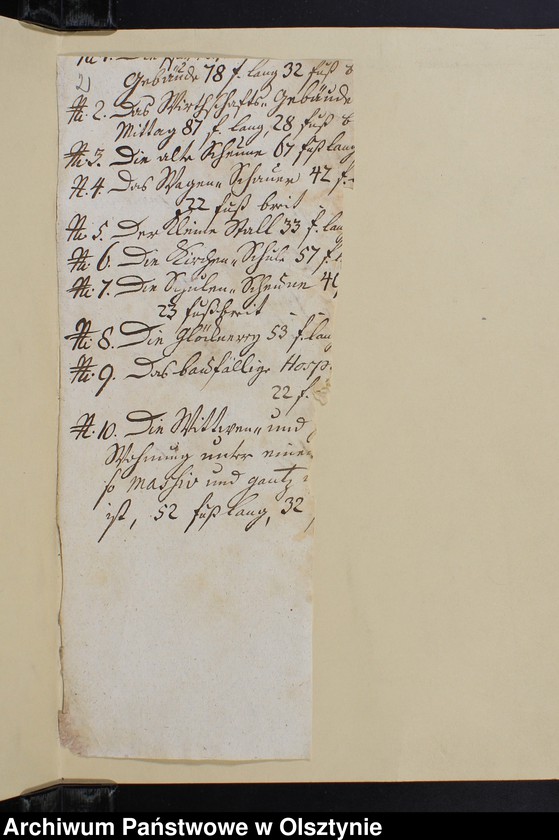 2)
Gebäude 78 f. lang 32 fuß
No. 2. Das Wirthschafts-Gebäude
Mittag 87 f. lang, 28 fuß
No. 3. Die alte Scheune 67 fuß lang
No. 4. Das Wagen-Schauer 42 f.
22 fuß breit
No. 5. Der kleine Stall 33 f. lan
No. 6. Die Kirchen-Schule 57 f.
No. 7. Die Schulen-Scheune 4
23 fuß breit
No. 8. Die Glöcknerey 53 f. lan
No. 9. Das baufällige Hosp
22 f.
No. 10. Die Wittwen- und
Wohnung unter eine
so massiv und gantz
ist, 52 fuß lang, 32
Archiwum Państwowe w Olsztynie